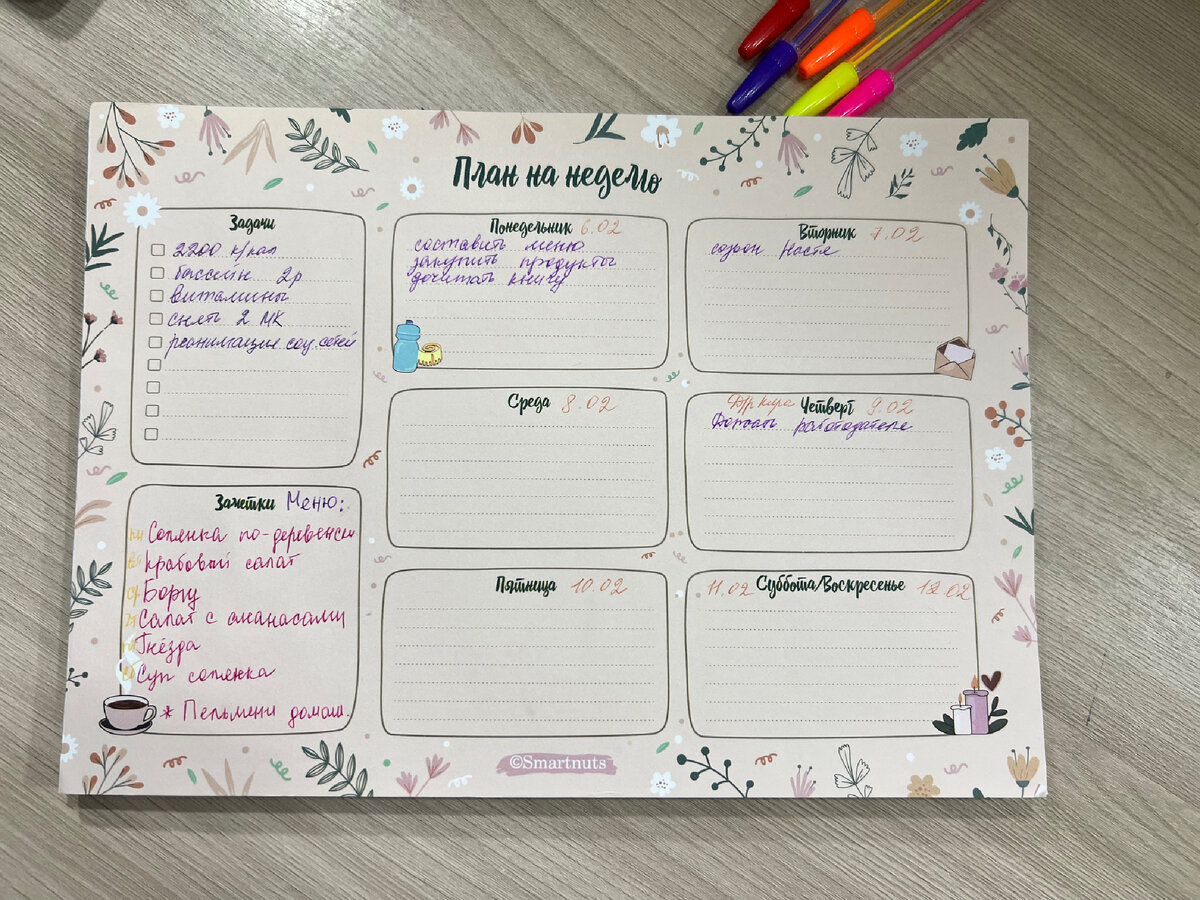 План на неделю
Задачи
2200 к/кал
бассейн 2р
витамины
снять 2 МК
реанимация соц.сетей
Понедельник 6.02
составить меню
закупить продукты
дочитать книгу
Вторник 7.02
созвон Настя
Среда 8.02
Четверг 9.02
работодателе
Пятница 10.02
11.02 Суббота/Воскресенье 12.02
Заметки Меню:
Солянка по-деревенски
крабовый салат
Борщ
Салат с ананасами
Гнёзда
Суп солянка
* Пельмени домаш.
©Smartnuts